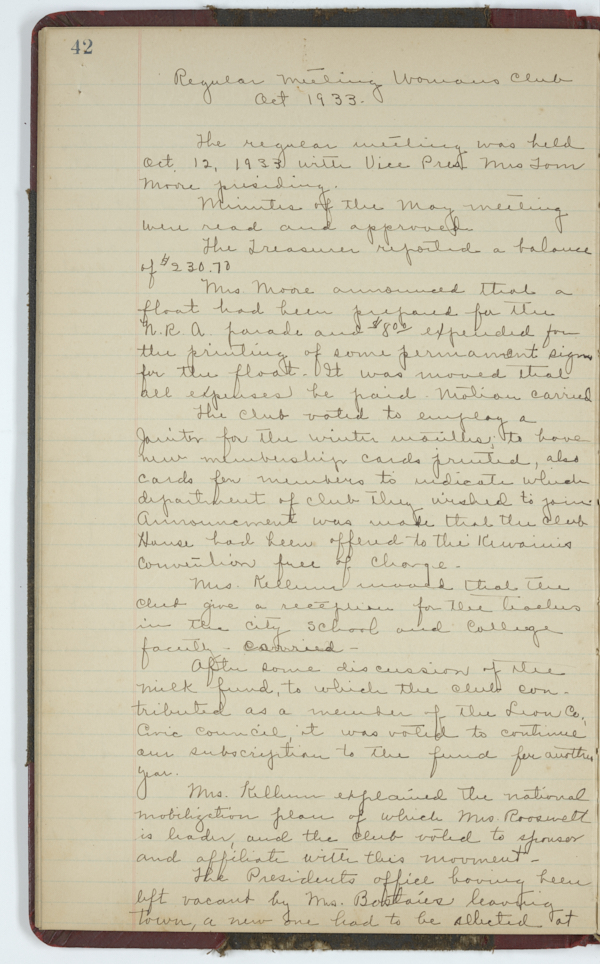 42
Regular Meeting Womans Club
Oct 1933.
The regular meeting was held
Oct. 12, 1933 with Vice Pres. Mrs Tom
Moore presiding.
Minutes of the May meeting
were read and approved.
The Treasurer reported a balance
of $230.70
Mrs. Moore announced that a
float had been prepared for the
N.R.A. parade and $8.00 expended for
the printing of some permanent signs
for the float. It was moved that
all expenses be paid. Motion carried
The Club voted to employ a
Janitor for the winter months; to have
new membership cards printed, also
cards for members to indicate which
department of club they wished to join.
Announcment was made that the Club
House had been offered to the Kewainis
Convention free of charge -
Mrs. Kellum moved that the
Club give a reception for the teachers
in the City School and College
faculty - carried -
After some discussion of the
milk fund, to which the club con-
tributed as a member of the Leon Co.
Civic Council, it was voted to continue
our subscription to the fund for another
year.
Mrs. Kellum explained the national
mobilization plan of which Mrs. Roosevelt
is leader, and the Club voted to sponsor
and affiliate with this movment -
The Presidents office having been
left vacant by Mrs. leaving
town, a new one had to be ellected at